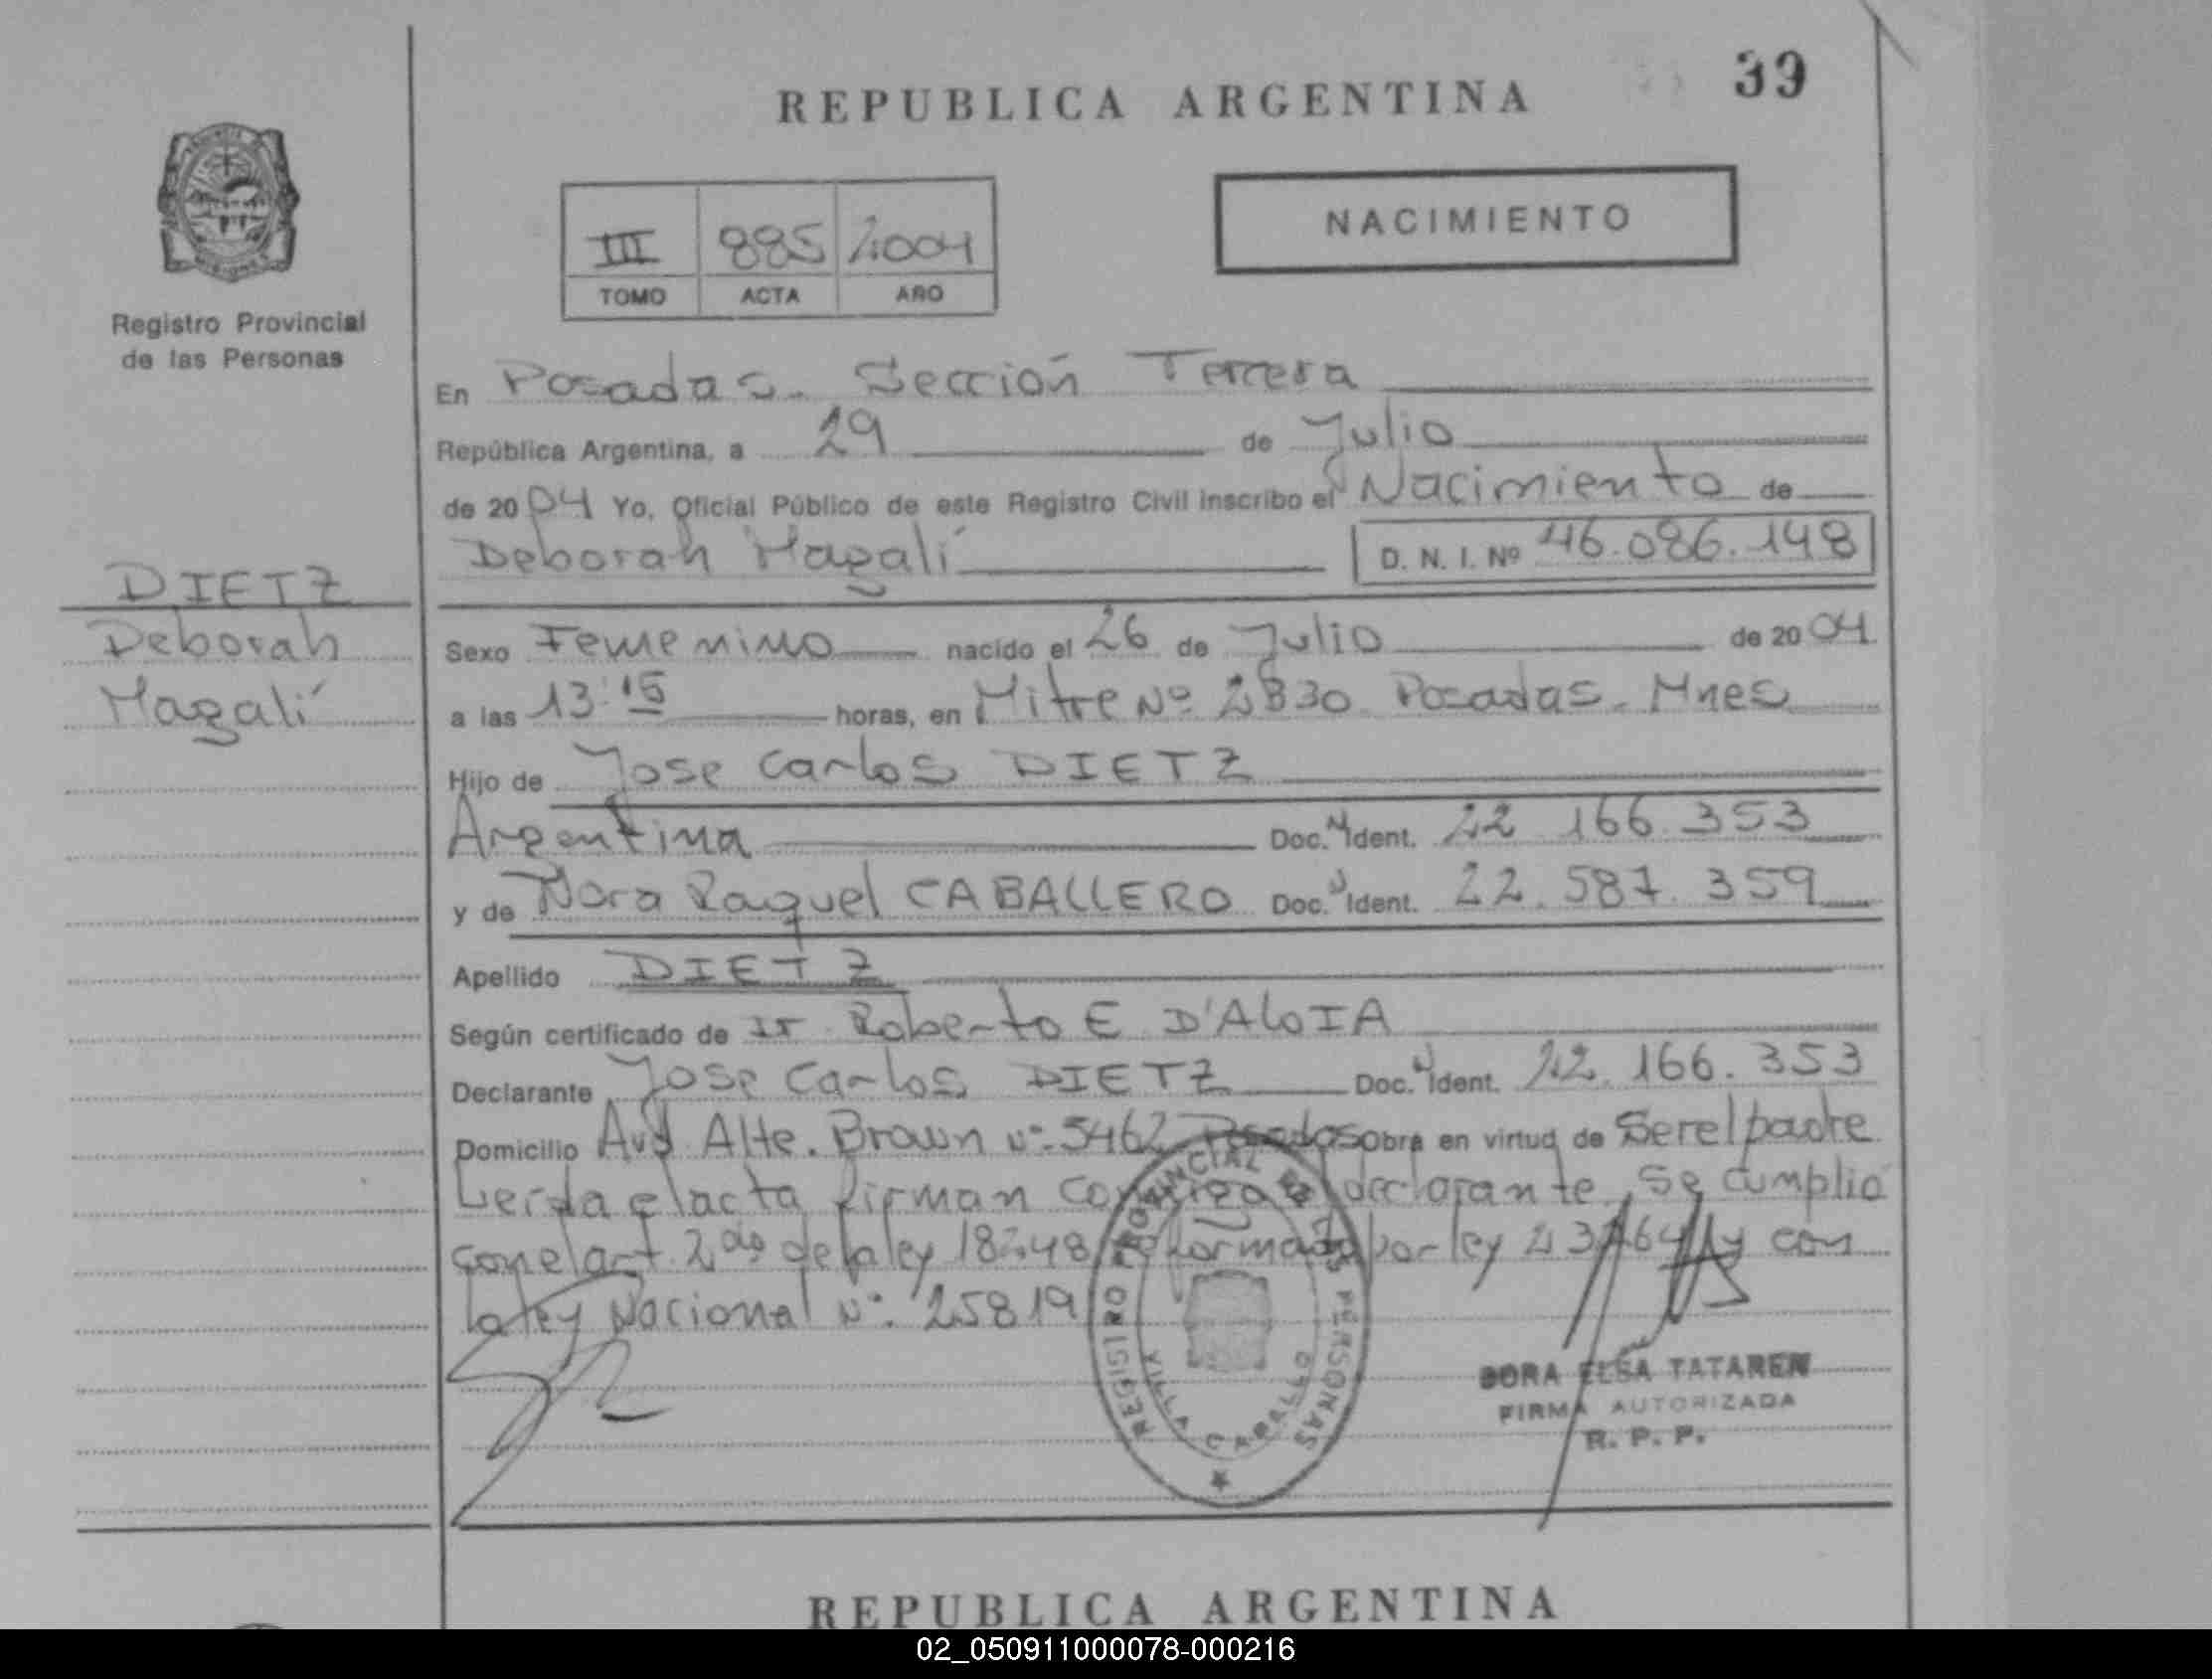 REPUBLICA ARGENTINA
39
III 885 2004
TOMO ACTA AÑO
NACIMIENTO
Registro Provincial
de las Personas
En Posadas. Sección Tercera
República Argentina, a 29 de Julio
de 2004 Yo, Oficial Público de este Registro Civil inscribo el Nacimiento de
Deborah Magalí D. N. I. Nº 46.086.148
DIETZ
Deborah
Magalí
Sexo Femenino nacido el 26 de Julio de 2004
a las 13:15 horas, en Mitre Nº 2830 Posadas. Mnes
Hijo de Jose Carlos DIETZ
Argentina Doc. N Ident. 22 166.353
y de Nora Raquel CABALLERO Doc. N Ident. 22.587.359
Apellido DIETZ
Según certificado de Roberto E D'ALOIA
Declarante Jose Carlos DIETZ Doc. N Ident. 22.166.353
Domicilio Avd Alte. Brown Nº 5462 Posadas Obra en virtud de ser el padre
Leída el acta firman conmigo el declarante, se cumplió
con el art. 2do de la ley 18248 reformada por ley y con
la ley Nacional Nº 25819
REGISTRO PROVINCIAL DE LAS PERSONAS
VILLA CABALLO
DORA ELSA TATAREN
FIRMA AUTORIZADA
R. P. P.
REPUBLICA ARGENTINA
02_050911000078-000216